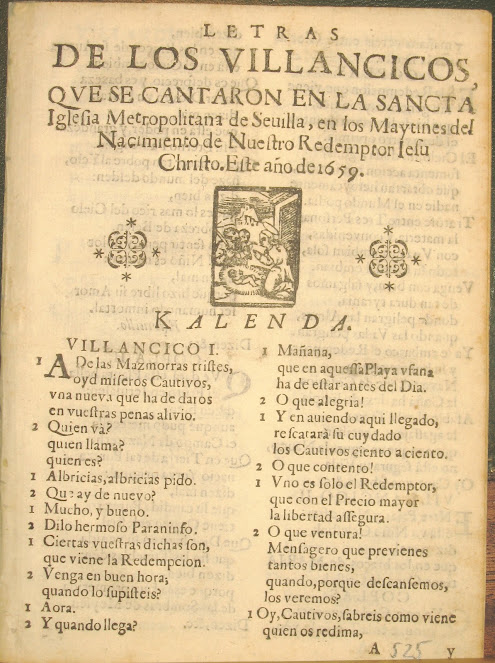 LETRAS
DE LOS VILLANCICOS,
QVE SE CANTARON EN LA SANCTA
Iglesia Metropolitana de Seuilla, en los Maytines del
Nacimiento de Nuestro Redemptor Iesu
Christo. Este año de 1659.
KALENDA.
VILLANCICO I.
1 A De las Mazmorras tristes,
oyd miseros Cautivos,
vna nueva que ha de daros
en vuestras penas alivio.
2 Quien và?
quien llama?
quien es?
1 Albricias, albricias pido.
2 Que ay de nuevo?
1 Mucho, y bueno.
2 Dilo hermoso Paraninfo.
1 Ciertas vuestras dichas son,
que viene la Redempcion.
2 Venga en buen hora;
quando lo supisteis?
1 Aora.
2 Y quando llega?
1 Mañana,
que en aquessa Playa vfana
ha de estar antes del Dia.
2 O que alegria!
1 Y en auiendo aqui llegado,
rescatarà su cuydado
los Cautivos ciento a ciento.
2 O que contento!
1 Vno es solo el Redemptor,
que con el Precio mayor
la libertad assegura.
2 O que ventura!
Mensagero que previenes
tantos bienes,
quando, porque descansemos,
los veremos?
1 Oy, Cautivos, sabreis como viene
quien os redima,
A 525 y